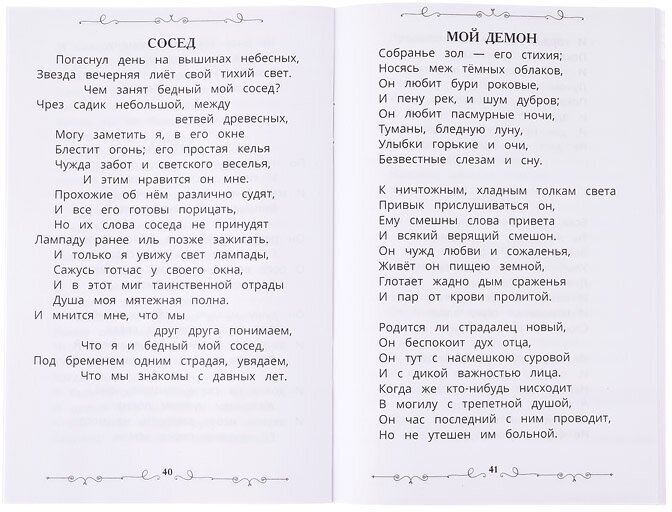 СОСЕД
Погаснул день на вышинах небесных,
Звезда вечерняя лиёт свой тихий свет.
Чем занят бедный мой сосед?
Чрез садик небольшой, между
ветвей древесных,
Могу заметить я, в его окне
Блестит огонь; его простая келья
Чужда забот и светского веселья,
И этим нравится он мне.
Прохожие об нём различно судят,
И все его готовы порицать,
Но их слова соседа не принудят
Лампаду ранее иль позже зажигать.
И только я увижу свет лампады,
Сажусь тотчас у своего окна,
И в этот миг таинственной отрады
Душа моя мятежная полна.
И мнится мне, что мы
друг друга понимаем,
Что я и бедный мой сосед,
Под бременем одним страдая, увядаем,
Что мы знакомы с давных лет.
40
МОЙ ДЕМОН
Собранье зол — его стихия;
Носясь меж тёмных облаков,
Он любит бури роковые,
И пену рек, и шум дубров;
Он любит пасмурные ночи,
Туманы, бледную луну,
Улыбки горькие и очи,
Безвестные слезам и сну.
К ничтожным, хладным толкам света
Привык прислушиваться он,
Ему смешны слова привета
И всякий верящий смешон.
Он чужд любви и сожаленья,
Живёт он пищею земной,
Глотает жадно дым сраженья
И пар от крови пролитой.
Родится ли страдалец новый,
Он беспокоит дух отца,
Он тут с насмешкою суровой
И с дикой важностью лица.
Когда же кто-нибудь нисходит
В могилу с трепетной душой,
Он час последний с ним проводит,
Но не утешен им больной.
41